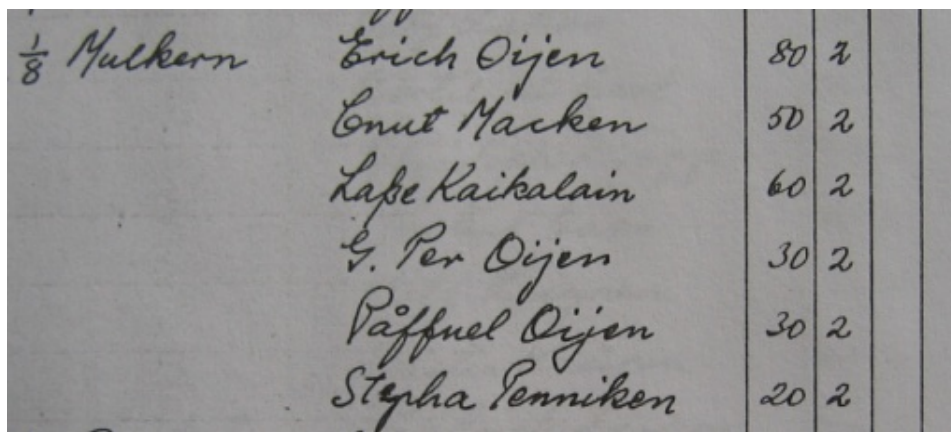 1/8 Mulkern Erich Oijen 80 2
Cnut Macken 50 2
Laße Kaikalain 60 2
G. Per Oijen 30 2
Påffuel Oijen 30 2
Stepha Penniken 20 2